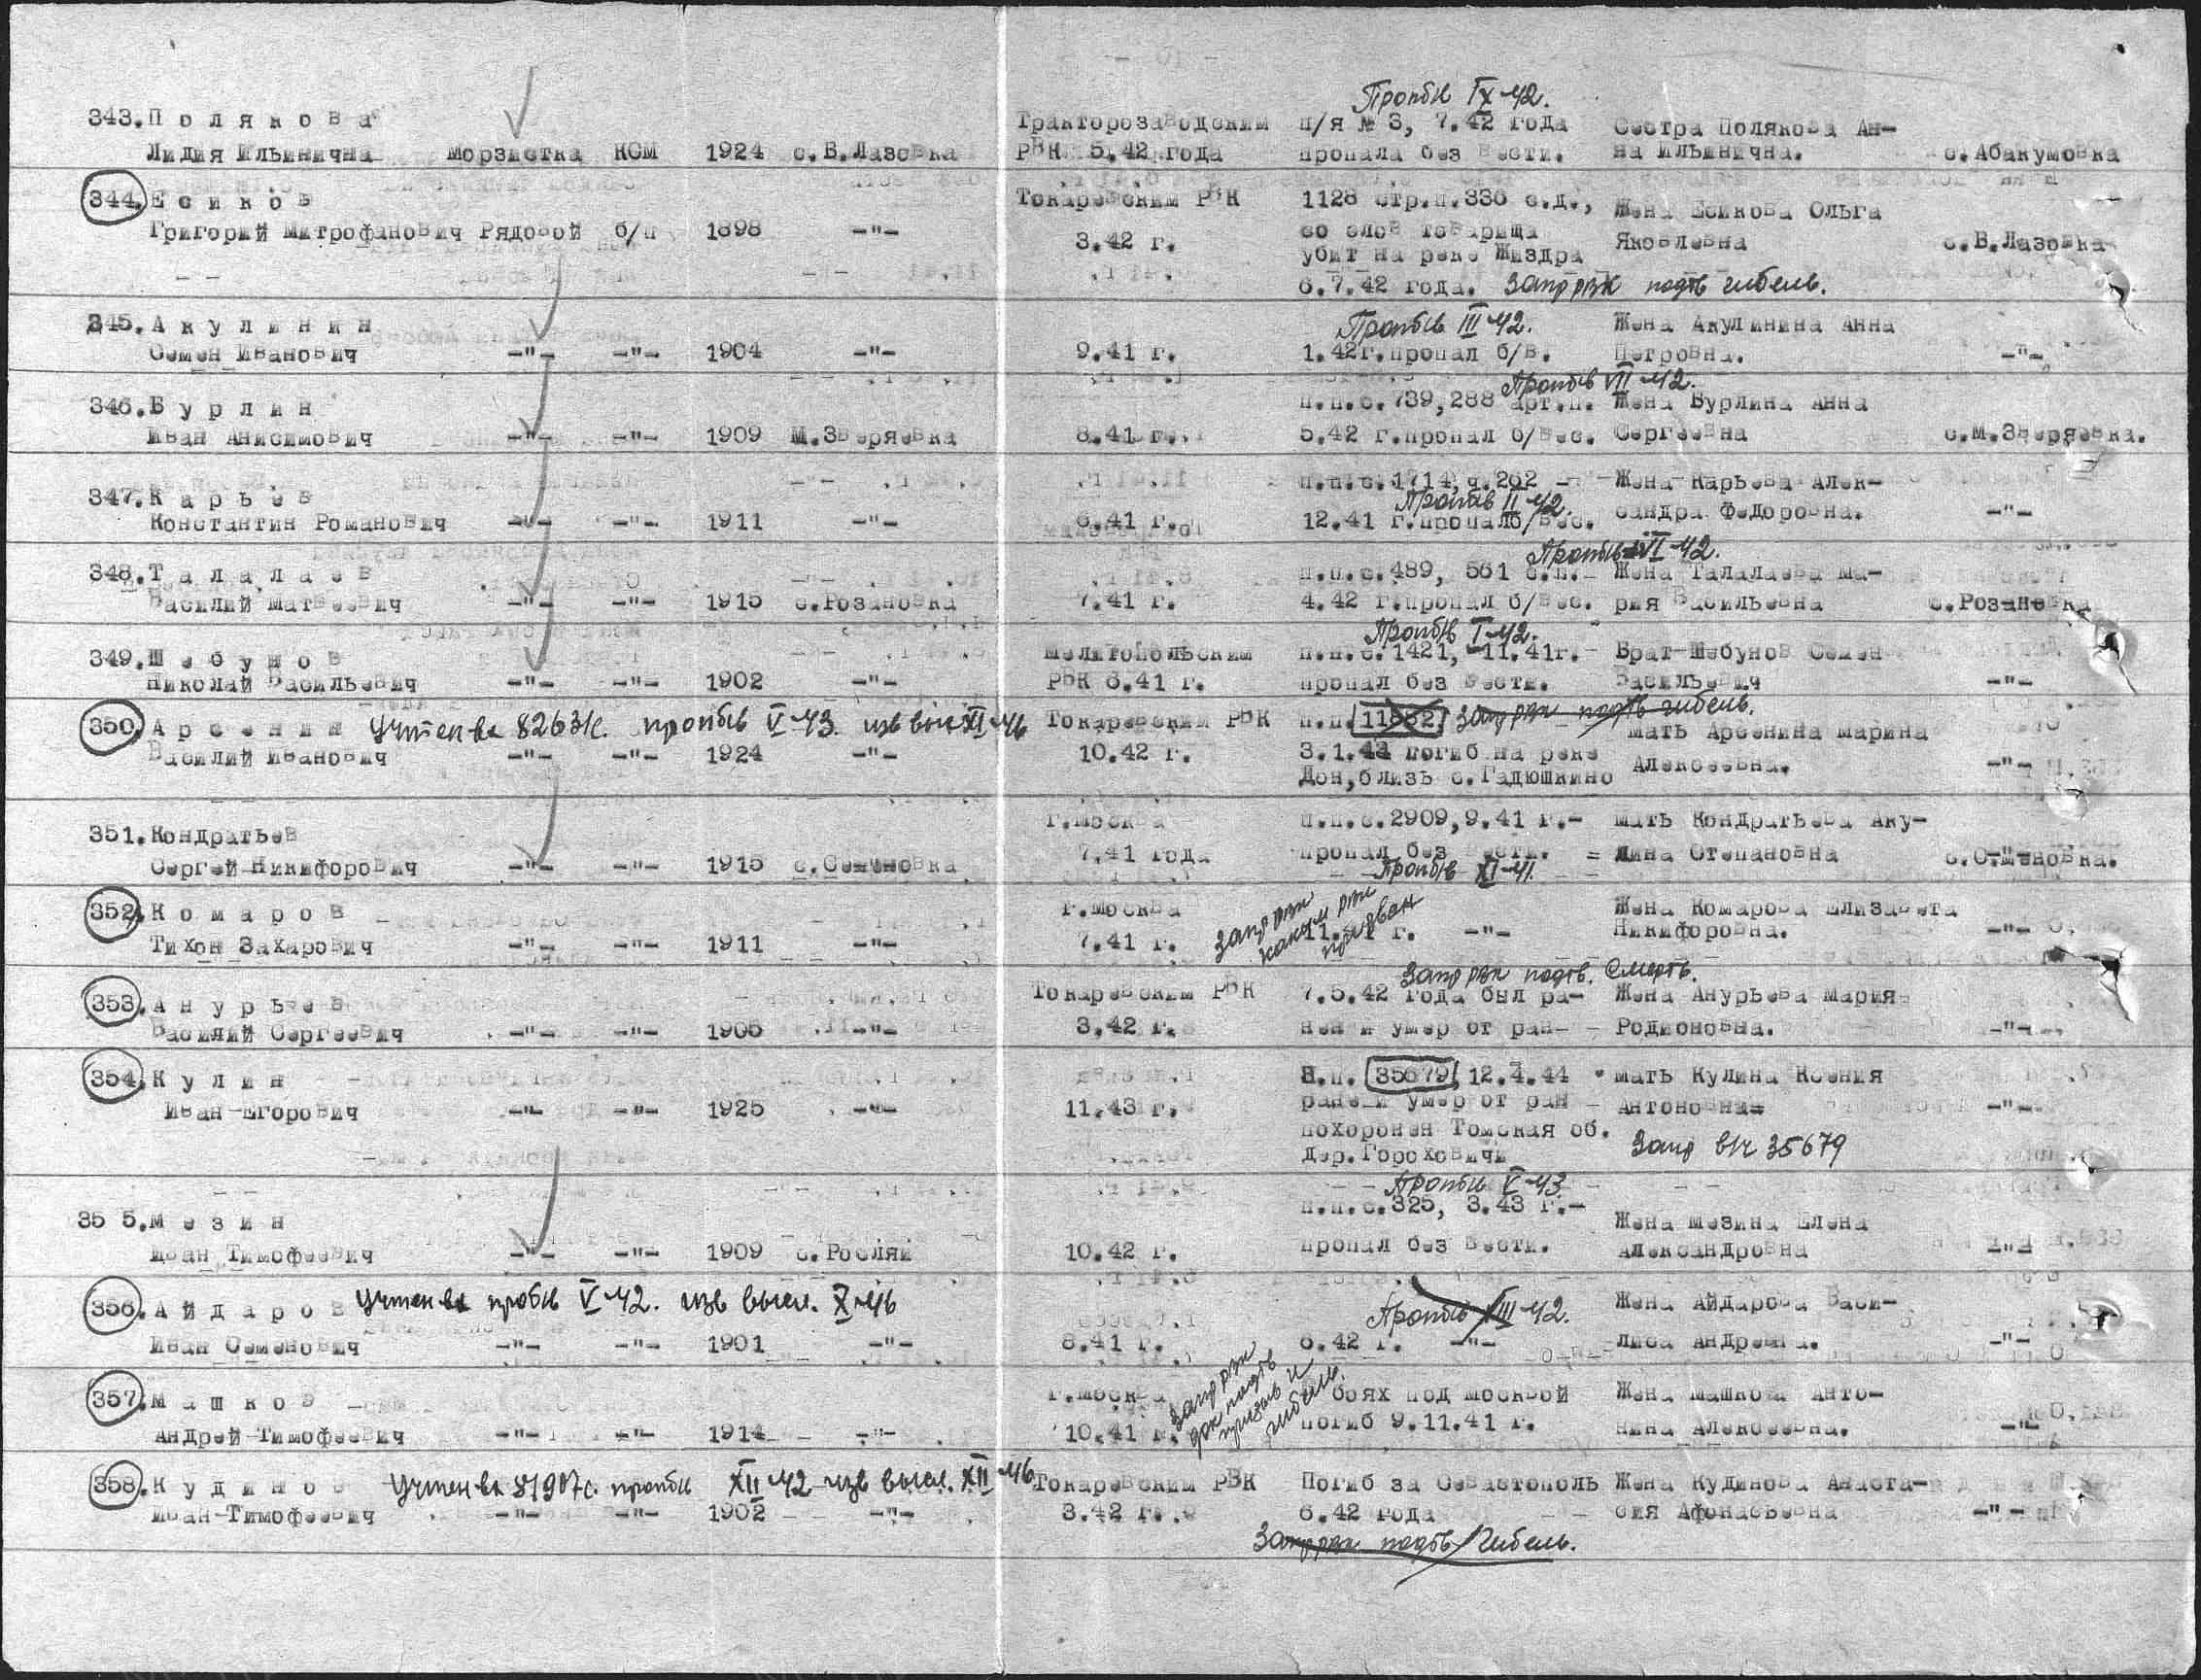 Пропбв IX-42.
343. П о л я к о в а Тракторозаводским п/я № 3, 7.42 года Сестра Полякова Ан-
Лидия Ильинична морзистка КСМ 1924 с.В.Лазовка РВК 5.42 года пропала без вести. на Ильинична. с.Абакумовка
344. Е с и к о в Токаревским РВК 1128 стр.п.336 с.д., Жена Есикова Ольга
Григорий Митрофанович Рядовой б/п 1898 -"- 3.42 г. со слов товарища Яковлевна с.В.Лазовка
убит на реке Жиздра
6.7.42 года. Запр рвк подтв гибель.
345. А к у л и н и н Пропбв III-42. Жена Акулинина Анна
Семен Иванович -"- -"- 1904 -"- 9.41 г. 1.42г.пропал б/в. Петровна. -"-
Пропбв VII-42.
346. Б у р л и н п.п.с.739,288 арт.п. Жена Бурлина Анна
Иван Анисимович -"- -"- 1909 М.Зверяевка 8.41 г. 5.42 г.пропал б/вес. Сергеевна с.М.Зверяевка.
347. К а р ь е в п.п.с.1714,ч.262 - Жена Карьева Алек-
Пропбв II-42.
Константин Романович -"- -"- 1911 -"- 6.41 г. 12.41 г.пропал б/вес. сандра Федоровна. -"-
Пропбв VI-42.
348. Т а л а л а е в п.п.с.489, 561 с.п. - Жена Талалаева Ма-
Василий Матвеевич -"- -"- 1915 с.Розановка 7.41 г. 4.42 г.пропал б/вес. рия Васильевна с.Розановка
Пропбв I-42.
349. Ш е б у н о в Мелитопольским п.п.с.1421, -11.41г.- Брат-Шебунов Семен
Николай Васильевич -"- -"- 1902 -"- РВК 6.41 г. пропал без вести. Васильевич -"-
350. А р с е н и н Учтен вк 82631с. пропбв V-43. изв выс XI-46 Токаревским РВК п.п. Запр рвк подтв гибель.
Мать Арсенина Марина
Василий Иванович -"- -"- 1924 10.42 г. 3.1.43 погиб на реке Алексеевна. -"-
Дон,близь с.Гадюшкино
351. Кондратьев г.Москва п.п.с.2909,9.41 г.- Мать Кондратьева Аку-
Сергей Никифорович -"- -"- 1915 с.Семеновка 7.41 года пропал без вести. = лина Степановна с.Семеновка.
Пропбв XI-41.
352. К о м а р о в г.Москва Запр рвк каким рвк призван Жена Комарова Елизавета
Тихон Захарович -"- -"- 1911 -"- 7.41 г. 11.41 г. -"- Никифоровна. -"-
Запр рвк подтв. смерть.
353. А н у р ь е в Токаревским РВК 7.5.42 года был ра- Жена Анурьева Мария
Василий Сергеевич -"- -"- 1905 -"- 3.42 г. нен и умер от ран- Родионовна. -"-
354. К у л и н п.п. 35679, 12.4.44 Мать Кулина Ксения
Иван Егорович -"- -"- 1925 -"- 11.43 г. ранен и умер от ран Антоновна -"-
похоронен Томская об.
дер.Гороховичи Запр в/ч 35679
Пропбв V-43
355. М е з и н п.п.с.325, 3.43 г.- Жена Мезина Елена
Иван Тимофеевич -"- -"- 1909 с.Росляи 10.42 г. пропал без вести. Александровна -"-
356. А й д а р о в Учтен вк пропбв V-42. изв высл. X-46 Пропбв VIII-42. Жена Айдарова Васи-
Иван Семенович -"- -"- 1901 -"- 8.41 г. 6.42 г. -"- лиса Андревна. -"-
357. М а ш к о в г.Москва Запр рвк док подтв призыв и гибель. боях под Москвой Жена Машкова Анто-
Андрей Тимофеевич -"- -"- 1914 -"- 10.41 г. погиб 9.11.41 г. нина Алексеевна. -"-
358. К у д и н о в Учтен вк 81907с. пропбв XII-42 изв высл. XII-46 Токаревским РВК Погиб за Севастополь Жена Кудинова Анаста-
Иван Тимофеевич -"- -"- 1902 -"- 3.42 г. 6.42 года сия Афонасьевна -"-
Запр рвк подтв гибель.